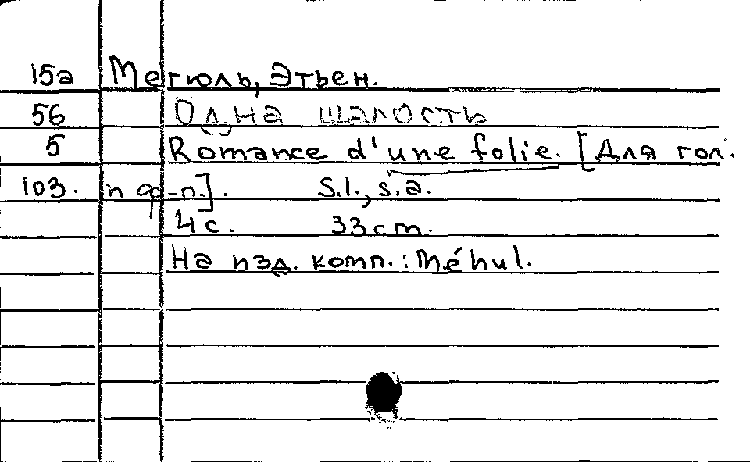 15а Мегюль, Этьен.
56 Одна шалость
5 Romance d'une folie. [Для гол.
103. и ф-п]. S.l., s.a.
4 с. 33 cm.
На изд. комп.: Méhul.